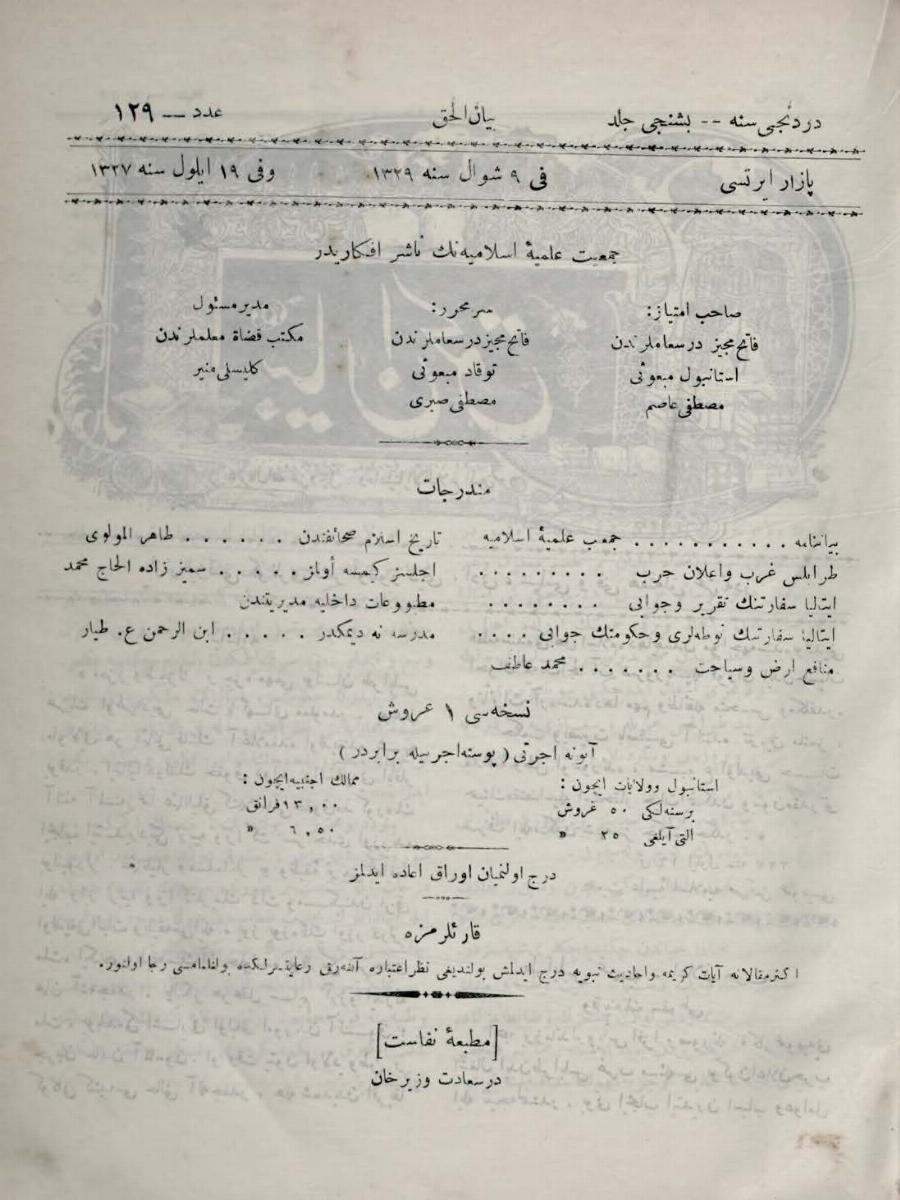 دردنجی سنه -- بشنجی جلد بیان الحق عدد — ۱۲۹
پازار ایرتسی فی ۹ شوال سنه ۱۳۲۹ وفی ۱۹ ایلول سنه ۱۳۲۷
جمعیت علمیهٔ اسلامیه‌نك ناشر افكاریدر
صاحب امتیاز: سر محرر: مدیر مسئول
فاتح مجیز درسعاملرندن فاتح مجیز درسعاملرندن مكتب قضاة معلملرندن
استانبول مبعوثی توقاد مبعوثی كلیسلی منیر
مصطفی عاصم مصطفی صبری
مندرجات
بیاننامه . . . . . . . . . . . جمعیت علمیهٔ اسلامیه
طرابلس غرب واعلان حرب . . . . . . . . .
ایتالیا سفارتنك تقریر وجوابی . . . . . . . .
ایتالیا سفارتنك نوطه‌لری وحكومتك جوابی . . . .
منافع ارض وسیاحت . . . . . . . محمد عاطف
تاریخ اسلام صحائفندن . . . . . . طاهر المولوی
اجلسز كیمسه أولمز . . . . . سمیز زاده الحاج محمد
مطبوعات داخلیه مدیریتندن
مدرسه نه دیمكدر . . . . . ابن الرحمن ع. طیار
نسخه‌سی ۱ غروش
آبونه اجرتی ( پوسته اجرسیله برابردر )
استانبول وولایات ایچون : ممالك اجنبیه ایچون :
برسنه‌لكی ۵۰ غروش ۱۳,۰۰ فرانق
التی آیلغی ۲۵ » ۶,۵۰ »
درج اولنمیان اوراق اعاده ایدلمز
قارئلرمزه
اكثر مقالاته آیات كریمه واحادیث نبویه درج ایدلمش بولندیغی نظر اعتباره آلنه‌رق رعایتسزلكده بولنلمامسی رجا اولنور.
[مطبعهٔ نفاست]
درسعادت وزیرخان